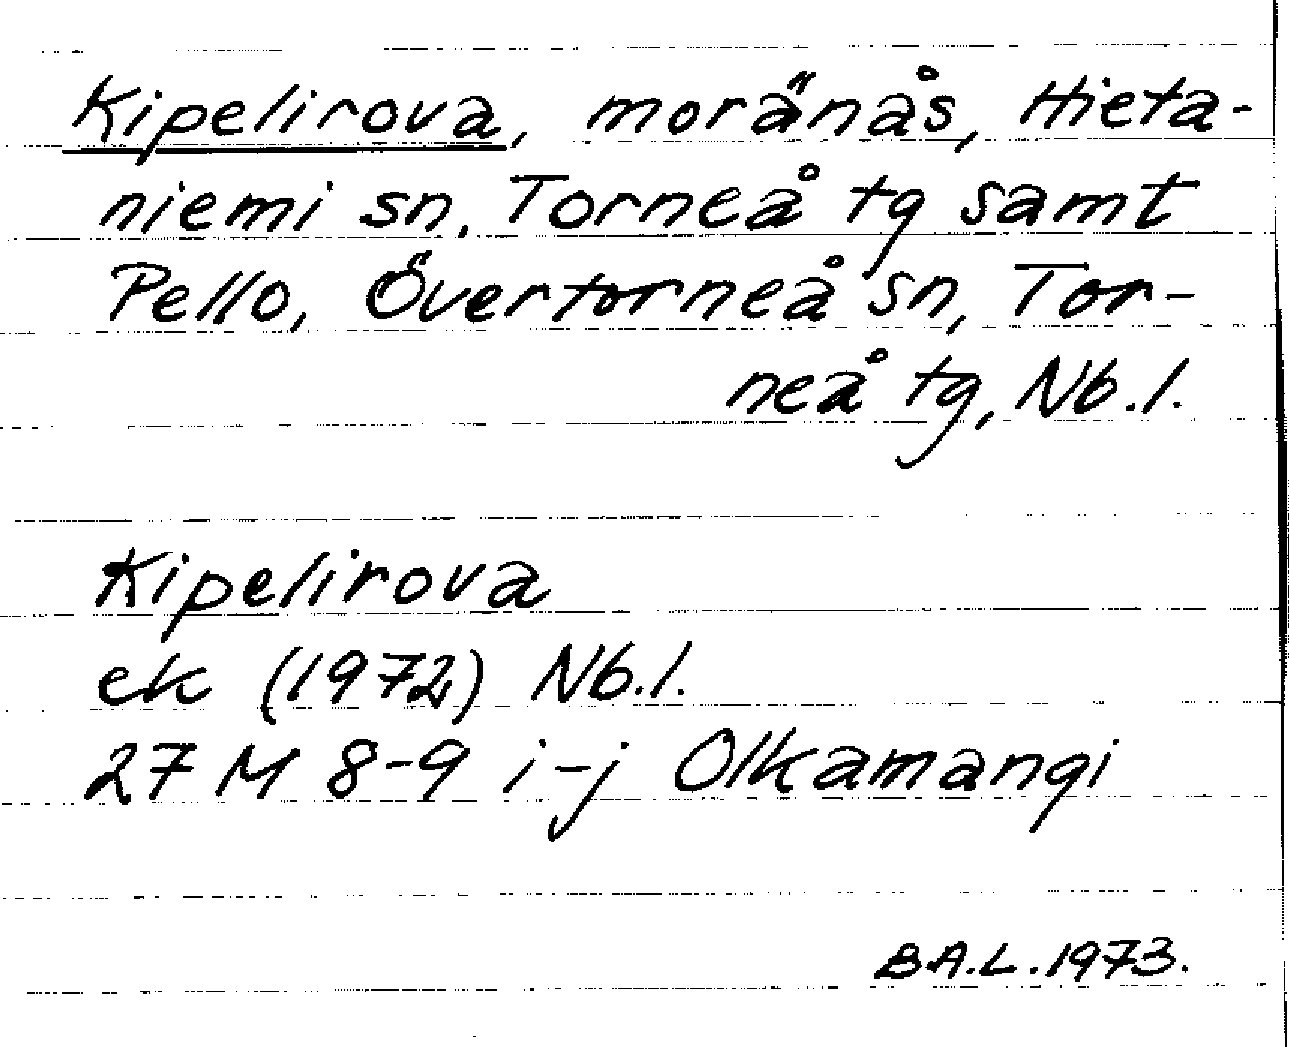 Kipelirova, moränås, Hieta-
niemi sn, Torneå tg samt
Pello, Övertorneå sn, Tor-
neå tg, Nb.l.
Kipelirova
ek (1972) Nb.l.
27 M 8-9 i-j Olkamangi
B.A.L. 1973.